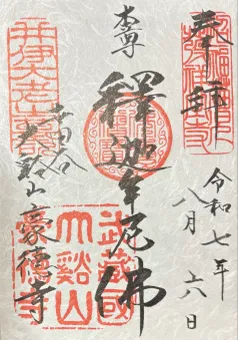 奉拝
令和七年
八月六日
本尊
釋迦牟尼佛
世田谷
大谿山豪德寺
井伊大老墓所
武藏國
大谿山
豪德寺